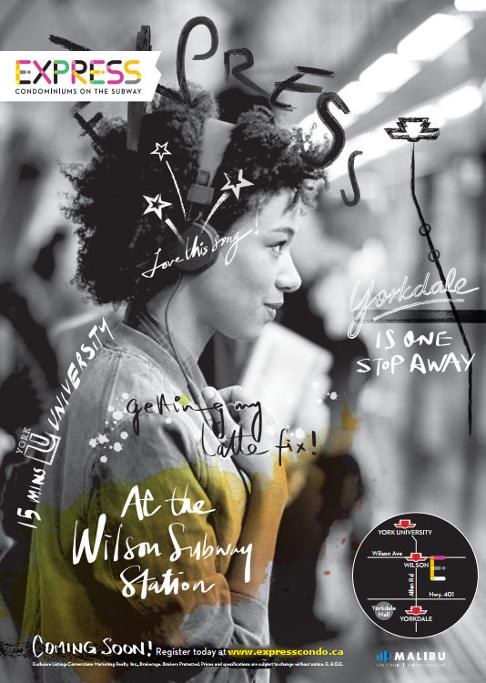 EXPRESS
EXPRESS
CONDOMINIUMS ON THE SUBWAY
Love this song!
Yorkdale
IS ONE
STOP AWAY
15 MINS YORK U UNIVERSITY
getting my
latte fix!
At the
Wilson Subway
Station
YORK UNIVERSITY
Wilson Ave
WILSON
E
Allen Rd
Hwy. 401
Yorkdale
Mall
YORKDALE
COMING SOON! Register today at www.expresscondo.ca
MALIBU
Exclusive Listing-Cornerstone Marketing Realty Inc., Brokerage. Brokers Protected. Prices and specifications are subject to change without notice. E. & O.E.